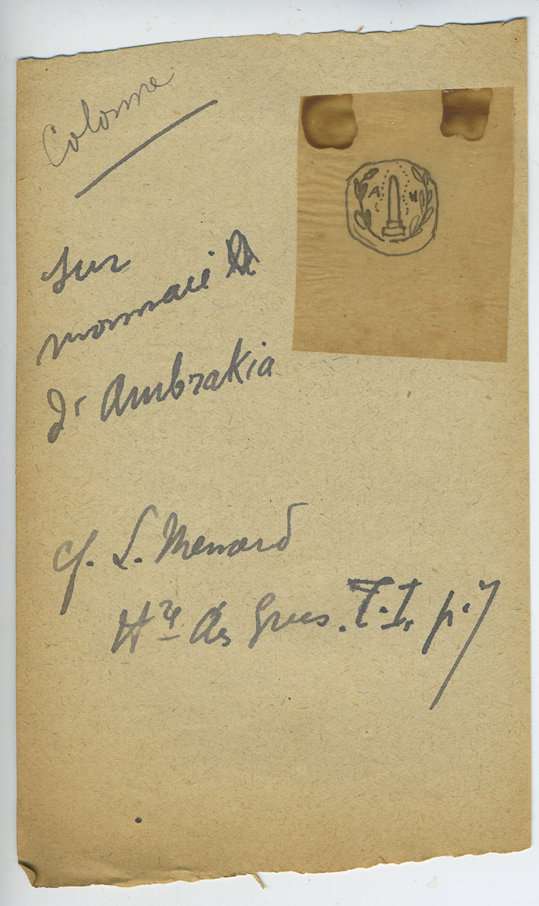 Colonne
sur
monnaie
d'Ambrakia
cf. L. Menard
Hre des Grecs. T. I. p. 7